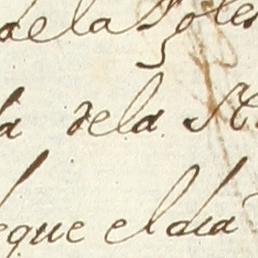 de la Ygles
la dela St
eque el dia